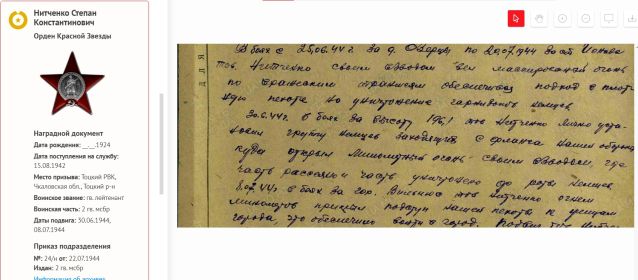 Нитченко Степан
Константинович
Орден Красной Звезды
Наградной документ
Дата рождения: __.__.1924
Дата поступления на службу:
15.08.1942
Место призыва: Тоцкий РВК,
Чкаловская обл., Тоцкий р-н
Воинское звание: гв. лейтенант
Воинская часть: 2 гв. мсбр
Даты подвига: 30.06.1944,
08.07.1944
Приказ подразделения
№: 24/н от: 22.07.1944
Издан: 2 гв. мсбр
Информация об архиве
для
В боях с 25.06.44 г. за д. по
тов. Нитченко своим взводом вел массированый огонь
по вражеским обеспечивал подход
пехоте на уничтожение немцев
30.6.44 г. в боях за высоту 196,1 тов Нитченко лично
группу немцев заходящих с фланга нашей обороны
куда открыл минометный огонь своим взводом, где
часть рассеял и часть уничтожено до роты немцев
8.07.44 г в боях за гор. тов Нитченко огнем
минометов прикрыл подступ нашей пехоты к улицам
города, это обеспечило войти в город.